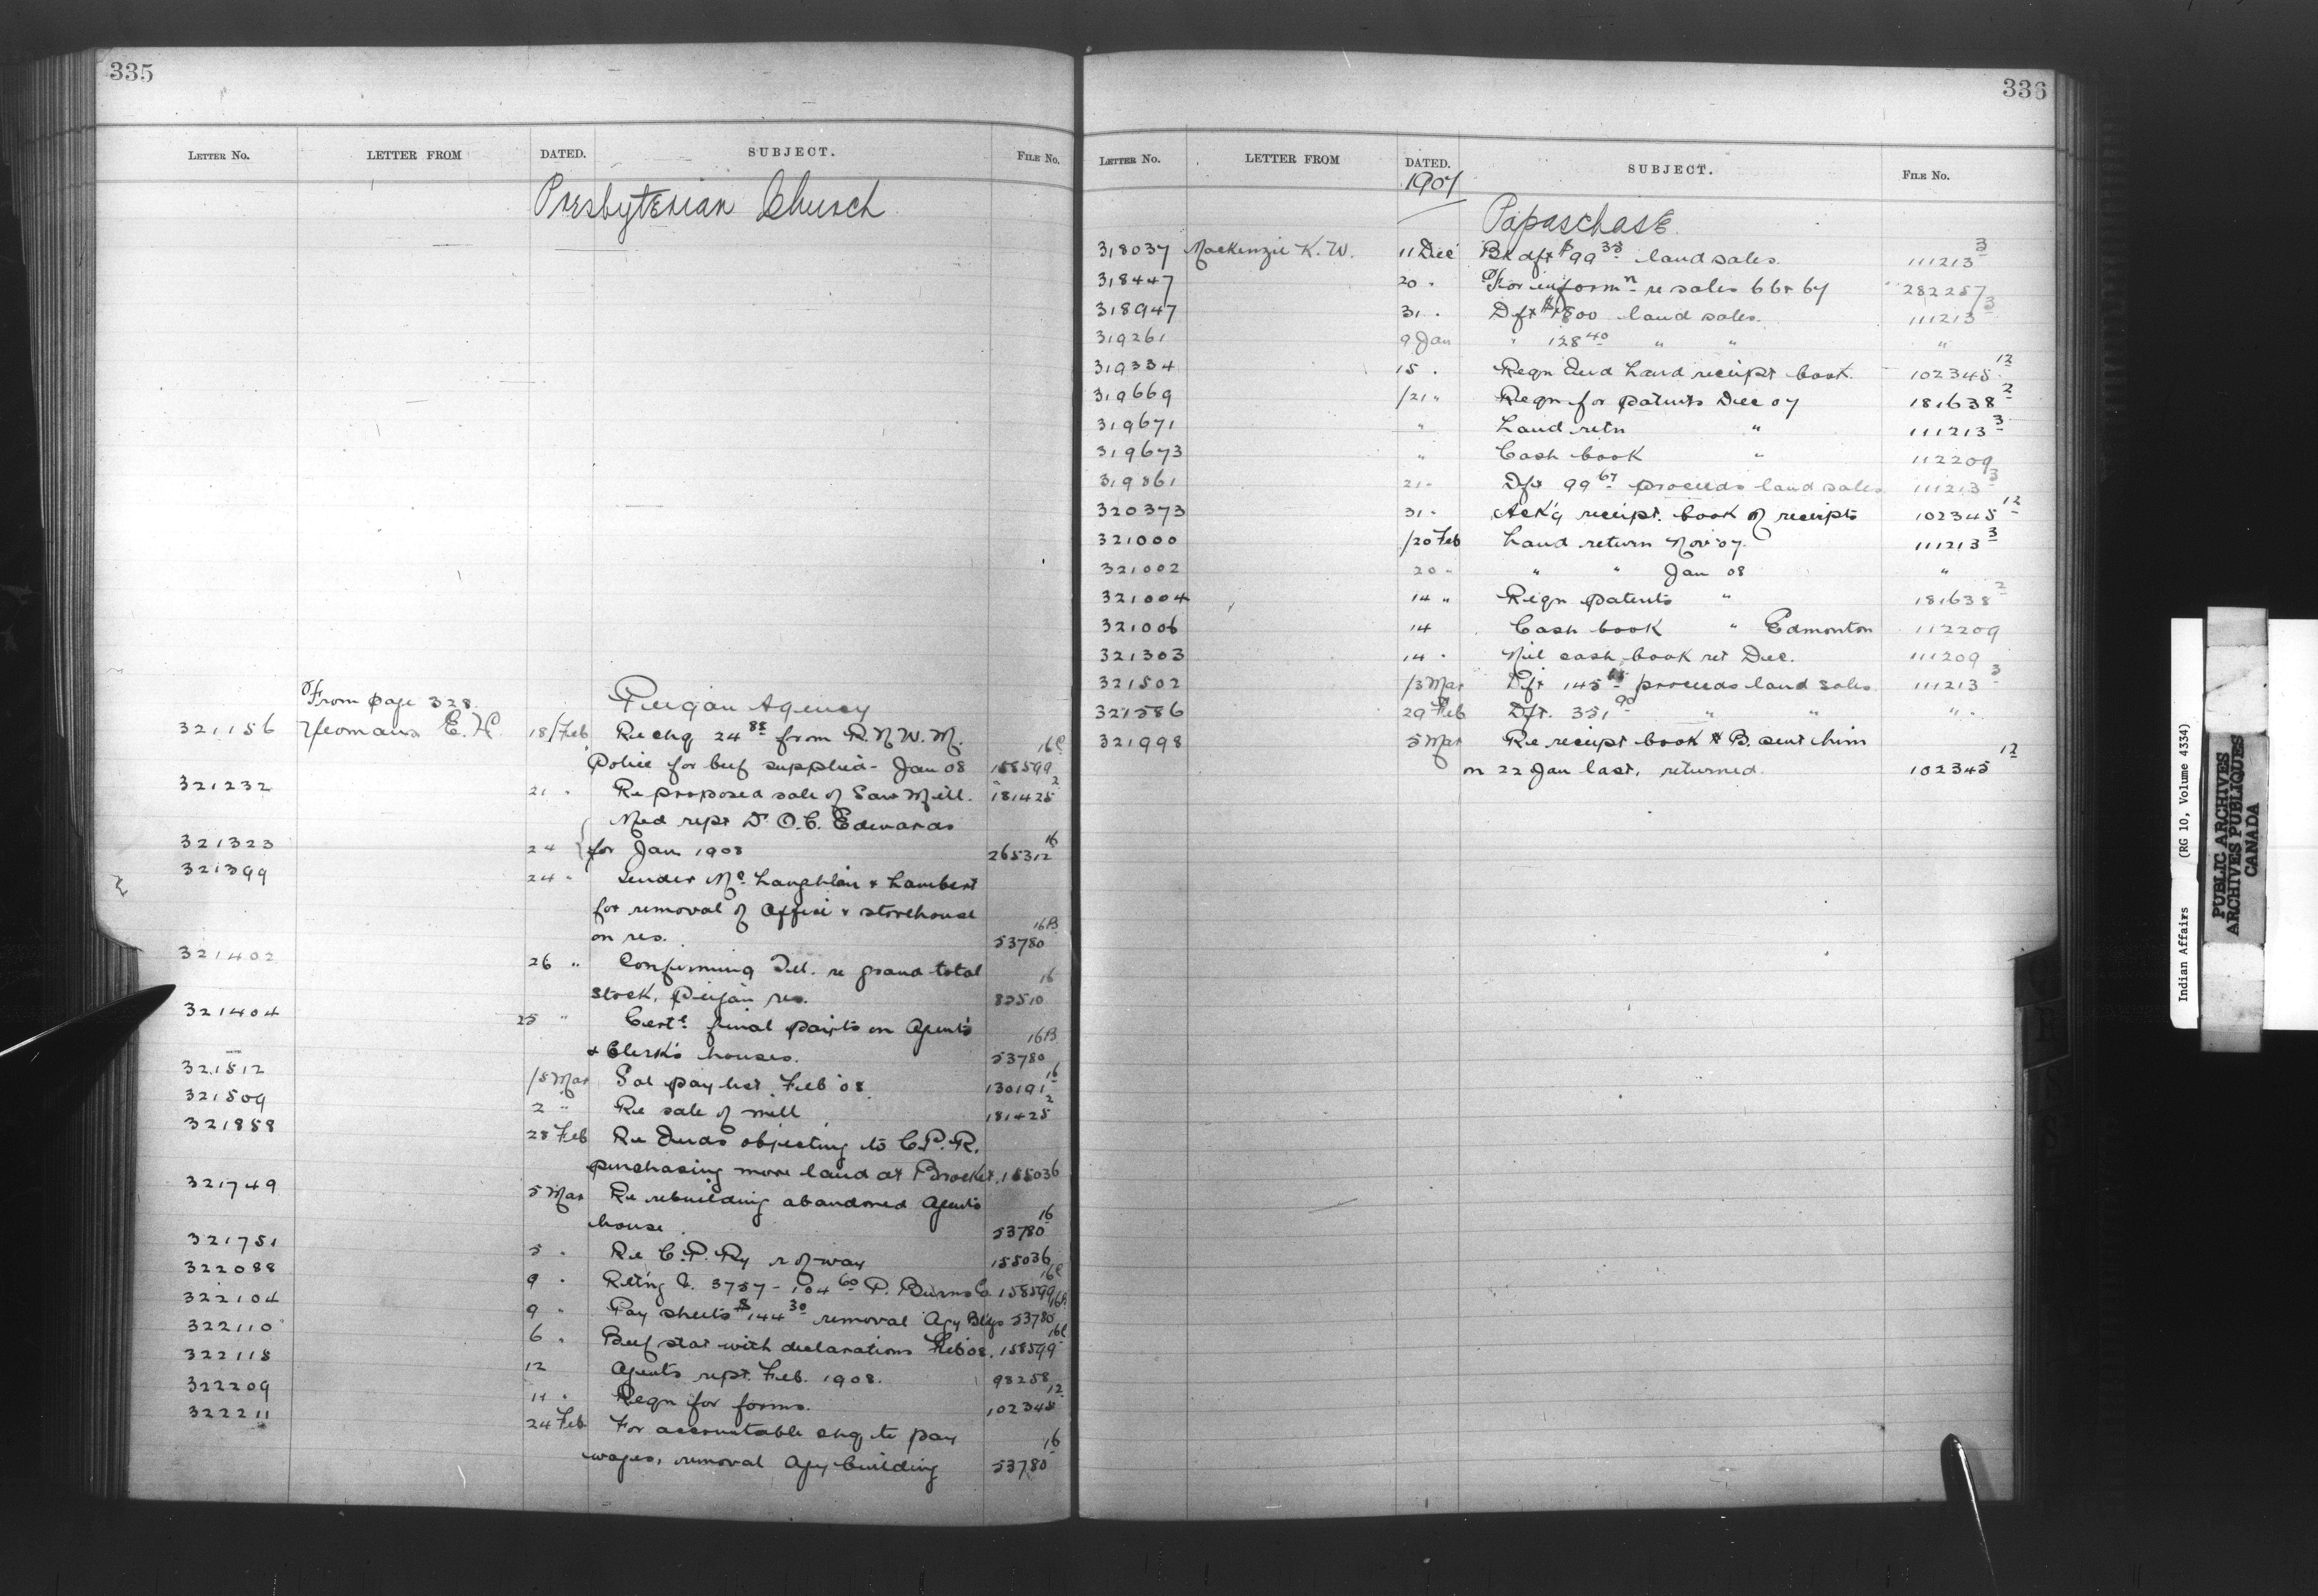 335
LETTER NO. LETTER FROM DATED. SUBJECT. FILE NO.
Presbyterian Church
From page 328. Peigan Agency
321156 Yeomans E. H. 18/Feb Re chq 24 88 from R. N. W. M.
Police for beef supplied - Jan 08 158599 16C
321232 21 " Re proposed sale of Saw Mill. 181425 2
Med rept Dr O. C. Edwards
321323 24 for Jan 1908 265312 16
321399 24 " Tender Mc Laughlin & Lambert
for removal of Office & storehouse
on res. 53780 16B
321402 26 " Confirming Tel. re grand total
stock, Peigan res. 82510 16
321404 25 " Certe final paints on Agent's
& Clerk's houses. 53780 16B
321512 /5 Mar Sal pay list Feb 08 130191 16
321509 2 " Re sale of mill 181425 2
321858 28 Feb Re Inds objecting to C. P. R.
purchasing more land at Brocket. 155036
321749 5 Mar Re rebuilding abandoned Agents
house 53780 16
321751 5 " Re C. P. Ry r of way 155036
322088 9 " Retng V. 3757 - 104 60 P. Burns Co. 158599 16C
322104 9 " Pay sheets $144 30 removal Agy Bldgs 53780 16B
322110 6 " Beef stat with declarations Feb 08. 158599 16C
322118 12 Agents rept. Feb. 1908. 98258
322209 11 " Reqn for forms. 102345 12
322211 24 Feb For accountable chq. to pay
wages, removal Agy building 53780 16
336
LETTER NO. LETTER FROM DATED. SUBJECT. FILE NO.
1907
Papaschase
318037 Mackenzie K. W. 11 Dec Bk dft $99 35 land sales. 111213 3
318447 20 " For informn re sales 66 & 67 282257
318947 31 " Dft $1800 land sales. 111213 3
319261 9 Jan " 128 40 " " "
319334 15 " Reqn Ind Land receipt book. 102345 12
319669 /21 " Reqn for patents Dec 07 181638 2
319671 " Land retn " 111213 3
319673 " Cash book " 112209
319861 21 " Dft 99 67 proceeds land sales 111213 3
320373 31 " Ack'g receipt book of receipts 102345 12
321000 /20 Feb Land return Nov 07. 111213 3
321002 20 " " " Jan 08 "
321004 14 " Reqn patents " 181638 2
321006 14 Cash book " Edmonton 112209
321303 14 " Nil cash book ret Dec. 111209
321502 /3 Mar Dft 145 15 proceeds land sales. 111213 3
321586 29 Feb Dft. 351 90 " " " "
321998 5 Mar Re receipt book # B. sent him
on 22 Jan last, returned. 102345 12
Indian Affairs (RG 10, Volume 4334)
PUBLIC ARCHIVES
ARCHIVES PUBLIQUES
CANADA